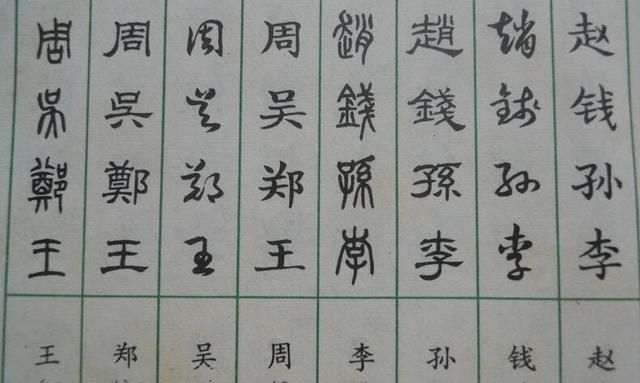 赵钱孙李
趙钱孙李
趙錢孫李
趙錢孫李
周吴郑王
周吴郑王
周吳鄭王
周吳鄭王
赵钱孙李周吴郑王